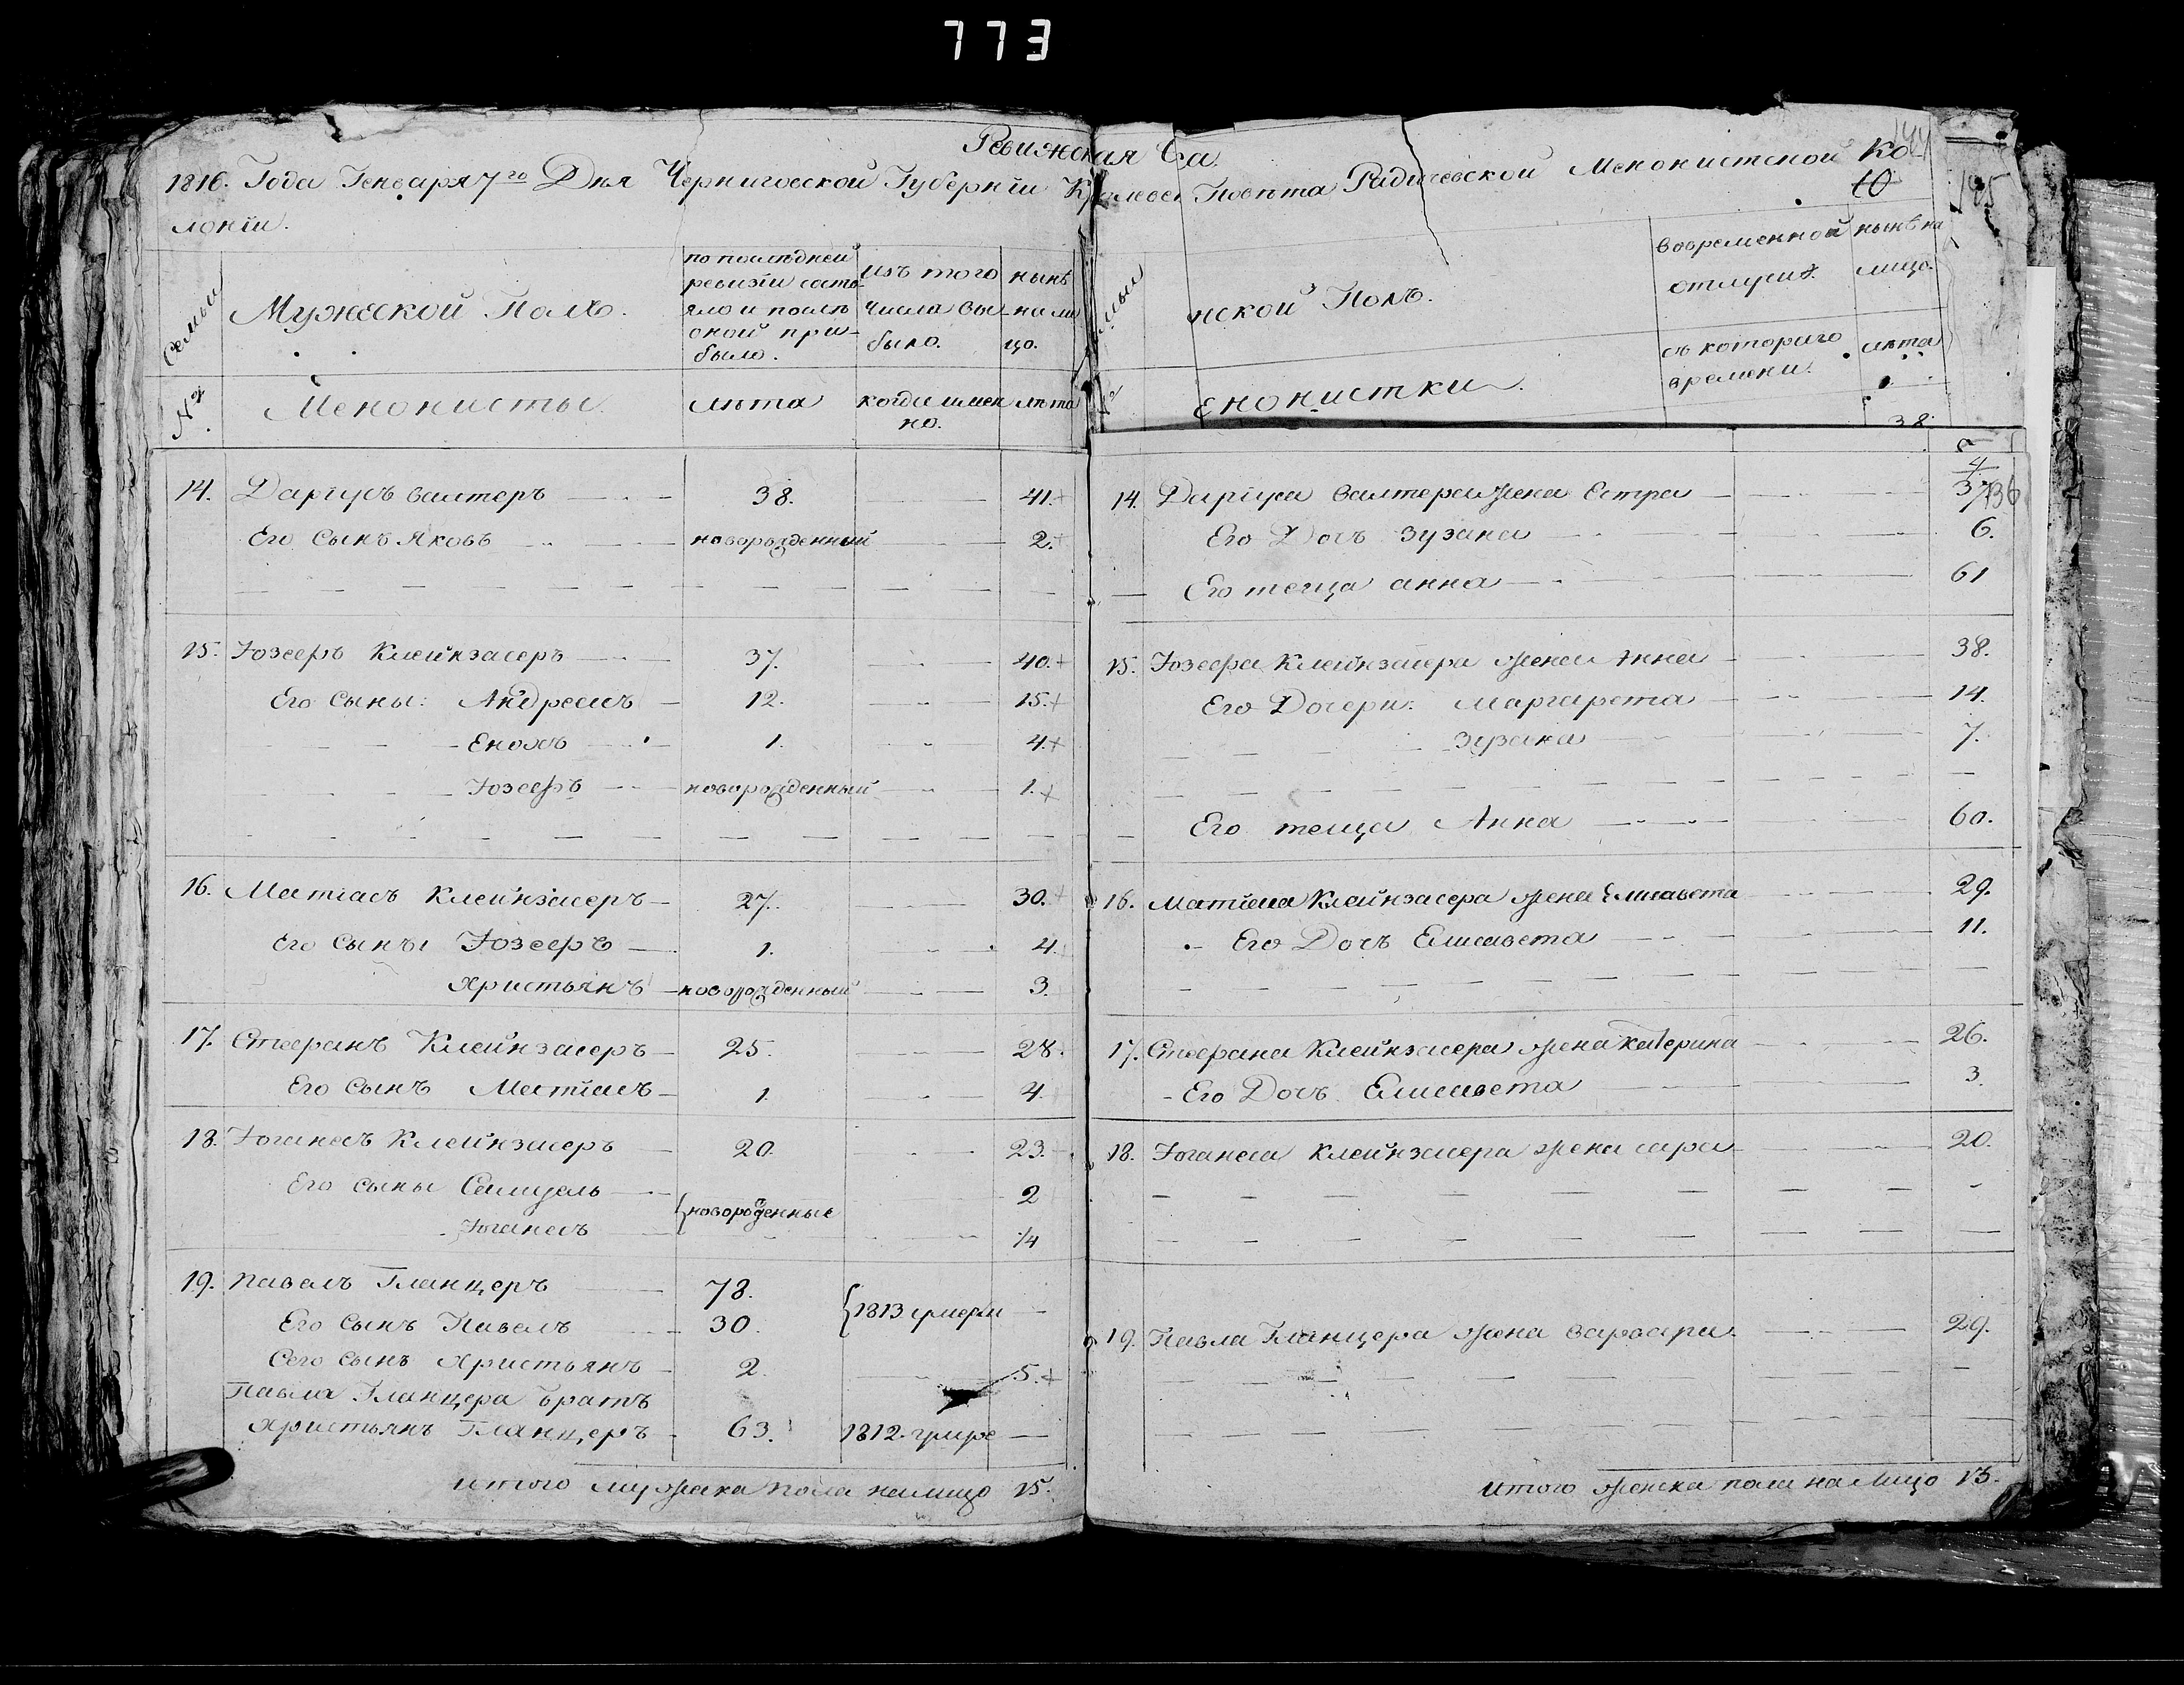 773
Ревижская Ска
1816. Года Генваря 7го Дня Черниговской Губернїи Кролевец Повѣта Радичевской Менонистской Ко
лонїи.
10
Семьи
Мужеской Полъ.
по последней
ревизїи состо
яло и после
оной при-
было.
изъ того
числа вы-
было.
нынѣ
на ли
цо.
№
Менонисты
лѣта
когда имен
но.
лѣта
14. Дарїусъ валтеръ 38. 41.
Его Сынъ Яковъ новорозденный 2.
15. Іозефъ Клейнзасеръ 37. 40.
Его Сыны: Андреасъ 12. 15.
Енохъ 1. 4.
Іозефъ новорозденный 1.
16. Матїасъ Клейнзасеръ 27. 30.
Его Сыны Іозефъ 1. 4.
Христьянъ новорозденный 3.
17. Стефанъ Клейнзасеръ 25. 28.
Его Сынъ Матїасъ 1. 4.
18. Іоганесъ Клейнзасеръ 20. 23.
Его сыны Самуель 2
новорозденные
Іоганесъ 1/4
19. Павалъ Гланцеръ 78.
1813 умерли
Его Сынъ Павалъ 30.
Сего сынъ Христьянъ 2. 5.
Павла Гланцера братъ
Христьянъ Гланцеръ 63. 1812. умре
итого мужеска пола налицо 15.
144
195
нской Полъ.
вовременной
отлучкѣ.
нынѣ на
лицо.
съ котораго
времени.
лѣта
енонистки
38.
14. Дарїуса валтера жена Естра 37 136
Его Дочъ Зузана 6.
Его теща анна 61
15. Іозефа Клейнзасера жена Анна 38.
Его Дочери: Маргарета 14.
Зузана 7.
Его теща Анна 60.
16. Матїаса Клейнзасера жена Елисавета 29.
Его Дочъ Елисавета 11.
17. Стефана Клейнзасера жена Катерина 26.
Его Дочъ Елисавета 3.
18. Іоганеса Клейнзасера жена сара 20.
19. Павла Гланцера жена варвара 29.
итого женска пола на лицо 13.